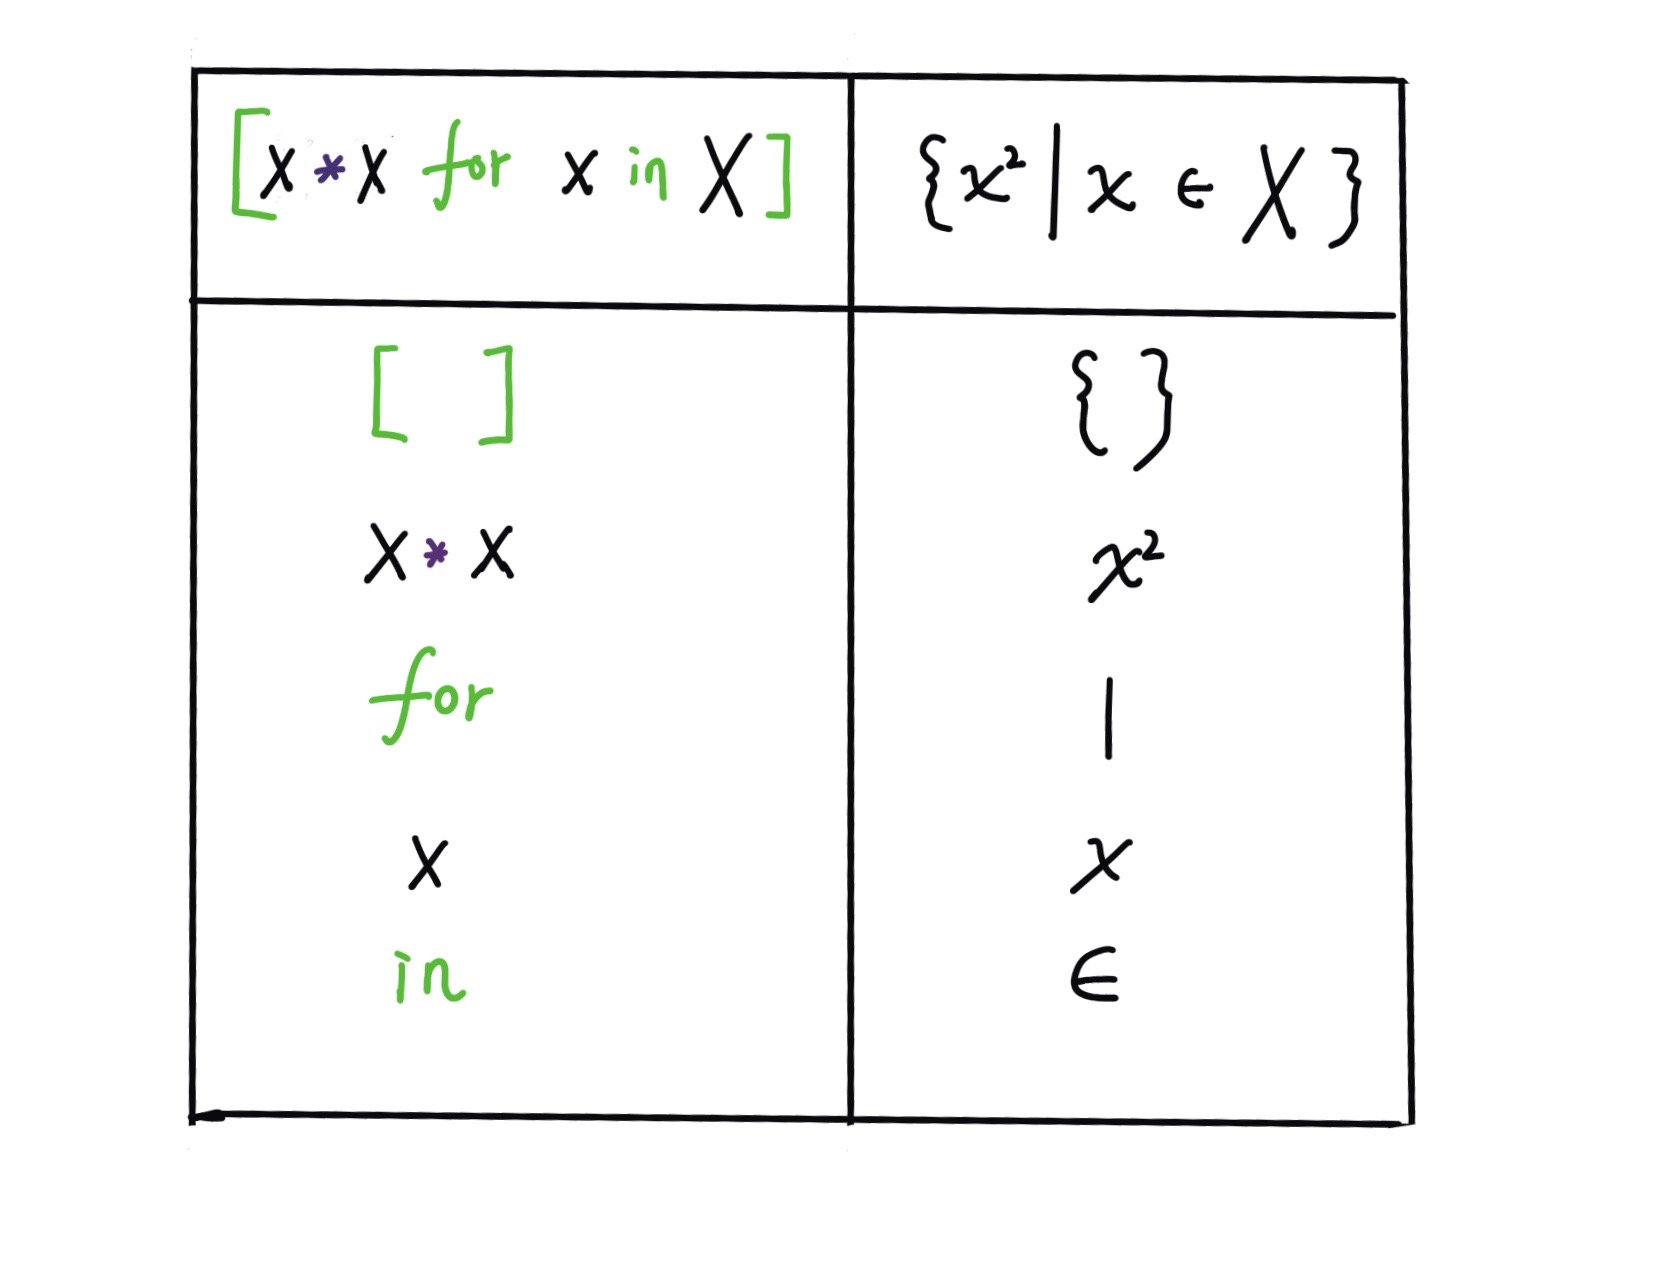 [x*x for x in X] {x²|x ∈ X}
[ ] { }
x*x x²
for |
x x
in ∈